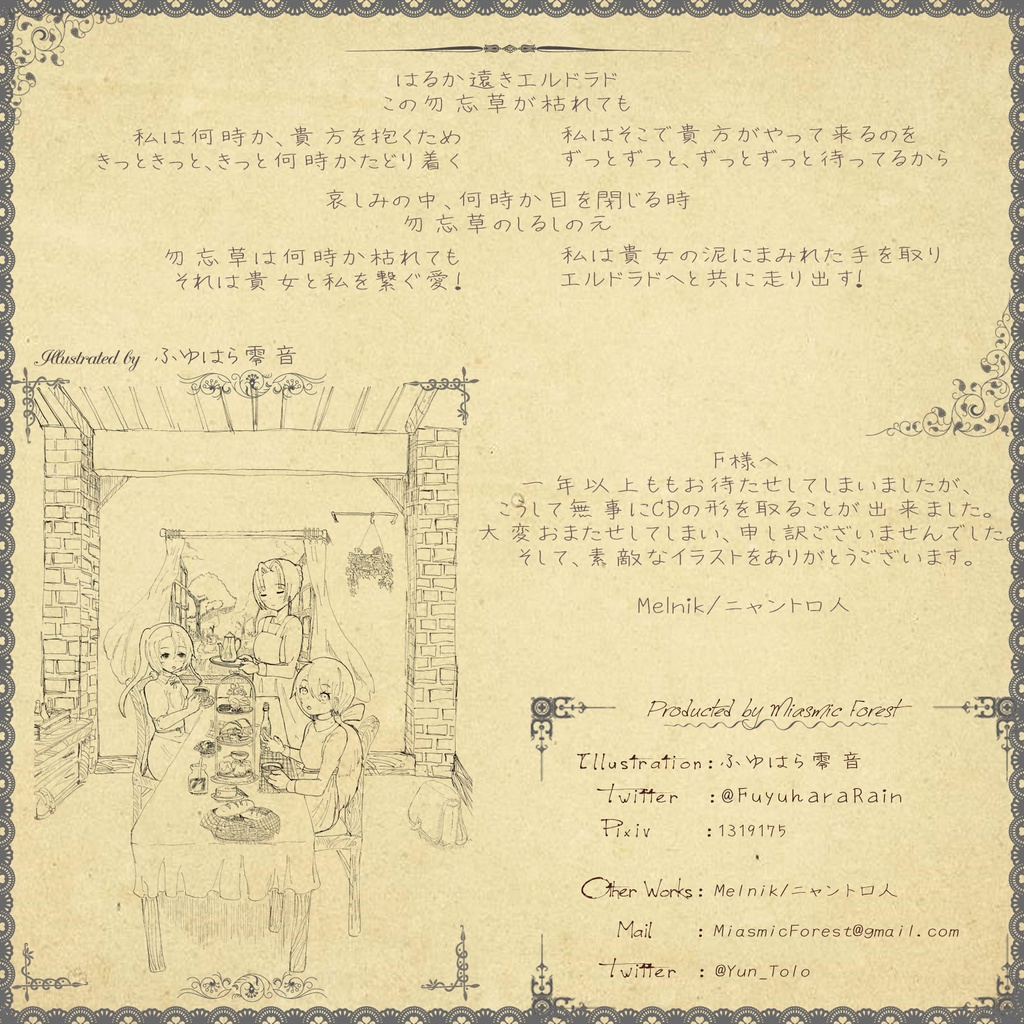 はるか遠きエルドラド
この勿忘草が枯れても
私は何時か、貴方を抱くため
きっときっと、きっと何時かたどり着く
私はそこで貴方がやって来るのを
ずっとずっと、ずっとずっと待ってるから
哀しみの中、何時か目を閉じる時
勿忘草のしるしの元
勿忘草は何時か枯れても
それは貴女と私を繋ぐ愛!
私は貴女の泥にまみれた手を取り
エルドラドへと共に走り出す!
Illustrated by ふゆはら零音
F様へ
一年以上ももお待たせしてしまいましたが、
こうして無事にCDの形を取ることが出来ました。
大変おまたせしてしまい、申し訳ございませんでした。
そして、素敵なイラストをありがとうございます。
Melnik/ニャントロ人
Producted by Miasmic Forest
Illustration : ふゆはら零音
Twitter : @FuyuharaRain
Pixiv : 1319175
Other Works : Melnik/ニャントロ人
Mail : MiasmicForest@gmail.com
Twitter : @Yun_Tolo